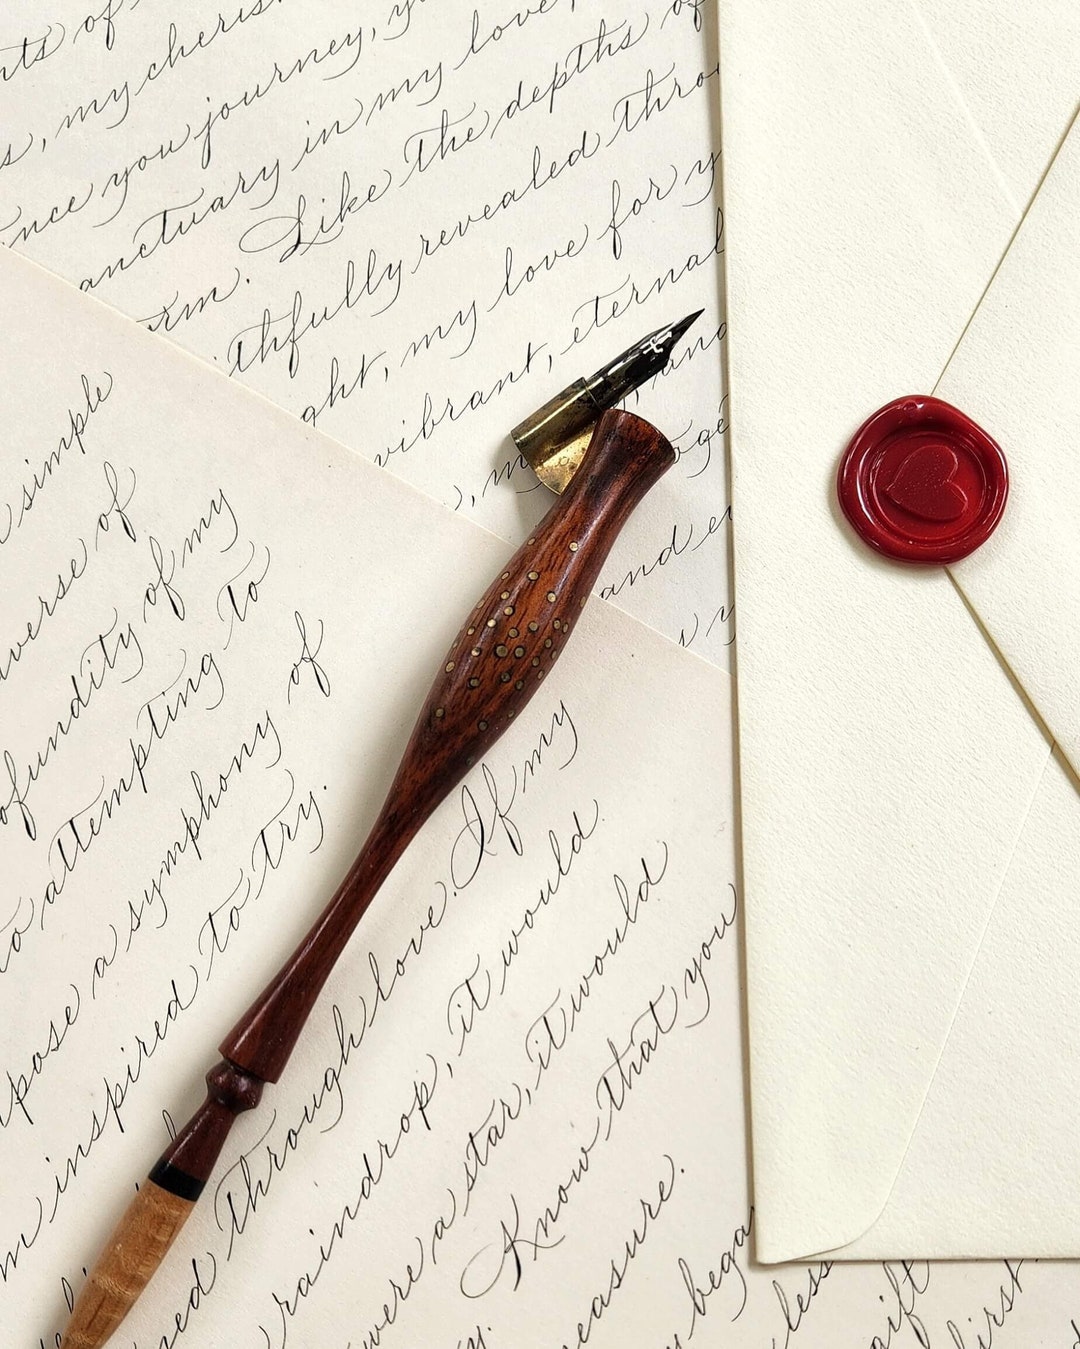 nts of
s, my cheris
ince you journey, y
anctuary in my love,
rm. Like the depths of
ithfully revealed thro
ght, my love for y
vibrant, eternal
, m and
oge
and e
simple
verse of
ofundity of my
to attempting to
pose a symphony of
m inspired to try.
ned through love. If my
raindrop, it would
were a star, it would
Know that you
easure.
y bega
less
gift
first